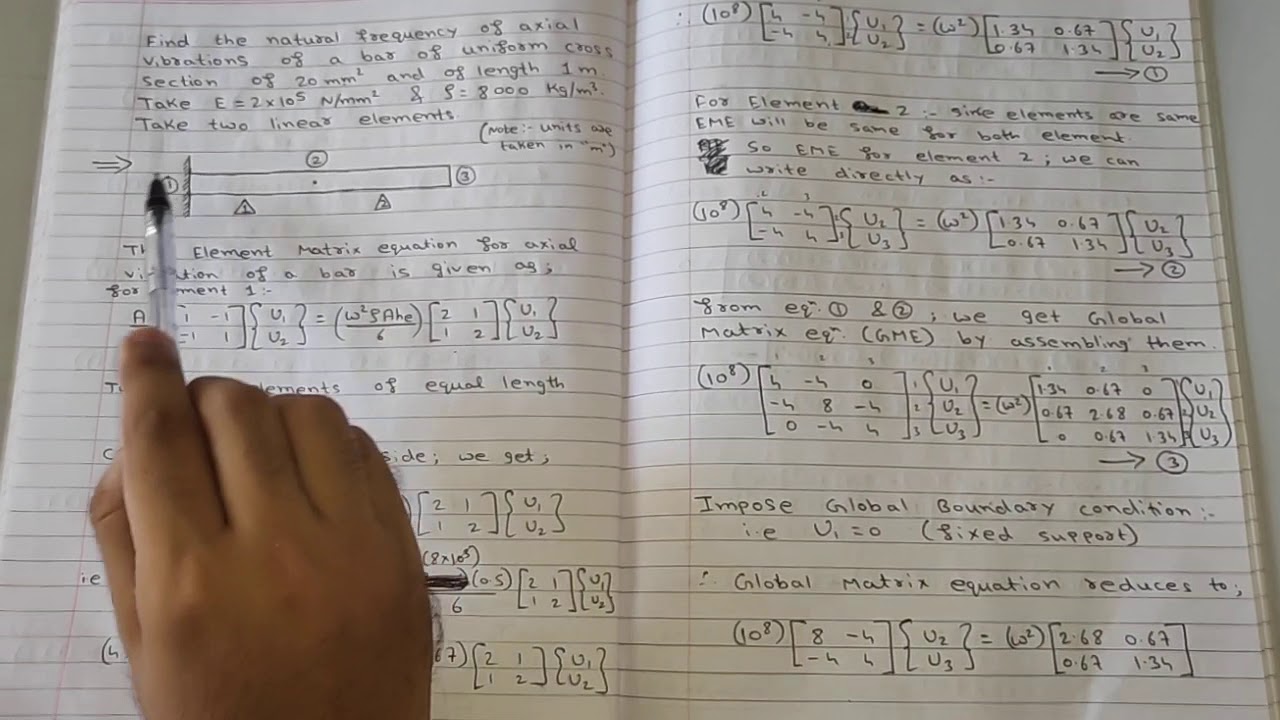 Find the natural frequency of axial
vibrations of a bar of uniform cross
section of 20 mm² and of length 1 m.
Take E = 2×10⁵ N/mm² & ρ = 8000 Kg/m³.
Take two linear elements.
(Note:- units are
taken in "m")
⇒ ① ② ③
△1 △2
Element Matrix equation for axial
of a bar is given as;
for element 1:-
1 -1 { U₁ = (ω²ρAhe) [ 2 1 { U₁
-1 1 ] U₂ } 6 1 2 ] U₂ }
elements of equal length
side; we get;
[ 2 1 { U₁
1 2 ] U₂ }
(8×10³)
ie (0.5) [ 2 1 { U₁
6 1 2 ] U₂ }
(4 67) [ 2 1 { U₁
1 2 ] U₂ }
∴ (10⁸) [ 4 -4 { U₁ = (ω²) [ 1.34 0.67 { U₁
-4 4 ] U₂ } 0.67 1.34 ] U₂ }
→ ①
For Element 2 :- sine elements are same
EME will be same for both element.
So EME for element 2; we can
write directly as:-
(10⁸) [ 4 -4 { U₂ = (ω²) [ 1.34 0.67 { U₂
-4 4 ] U₃ } 0.67 1.34 ] U₃ }
→ ②
from eqⁿ ① & ②; we get Global
Matrix eqⁿ (GME) by assembling them.
1 2 3 1 2 3
(10⁸) [ 4 -4 0 ] 1 { U₁ } = (ω²) [ 1.34 0.67 0 ] 1 { U₁ }
-4 8 -4 2 U₂ 0.67 2.68 0.67 2 U₂
0 -4 4 3 U₃ 0 0.67 1.34 3 U₃
→ ③
Impose Global Boundary condition:-
i.e U₁ = 0 (fixed support)
∴ Global Matrix equation reduces to;
(10⁸) [ 8 -4 { U₂ = (ω²) [ 2.68 0.67
-4 4 ] U₃ } 0.67 1.34 ]